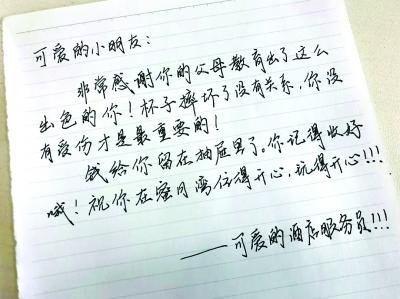 可爱的小朋友：
非常感谢你的父母教育出了这么
出色的你！杯子摔坏了没有关系，你没
有受伤才是最重要的！
钱给你留在抽屉里了。你记得收好
哦！祝你在蜜月湾住得开心，玩得开心!!!
——可爱的酒店服务员!!!